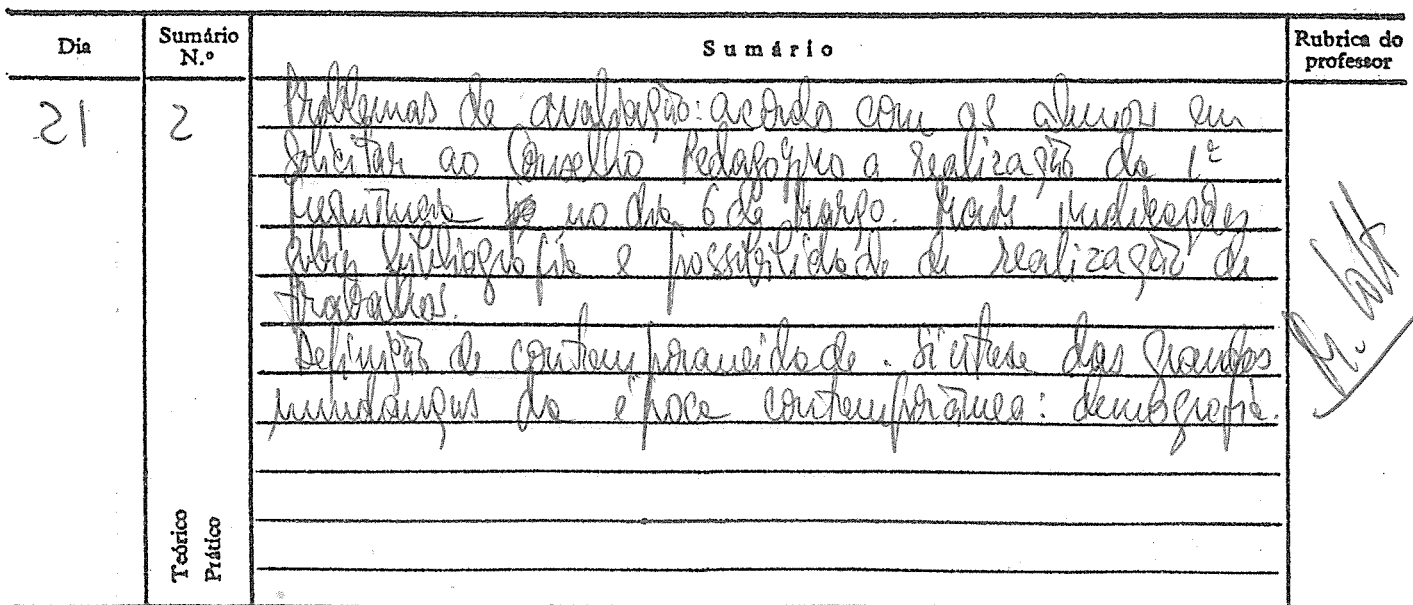 Dia
Sumário N.º
Sumário
Rubrica do professor
21
2
Problemas de avaliação: acordo com os alunos em
solicitar ao Conselho Pedagógico a realização da 1ª
no dia 6 de Março. Mais indicações
sobre bibliografia e possibilidade de realização de
trabalhos.
Definição de contemporaneidade. Síntese das grandes
mudanças da época contemporânea: demografia.
Teórico
Prático